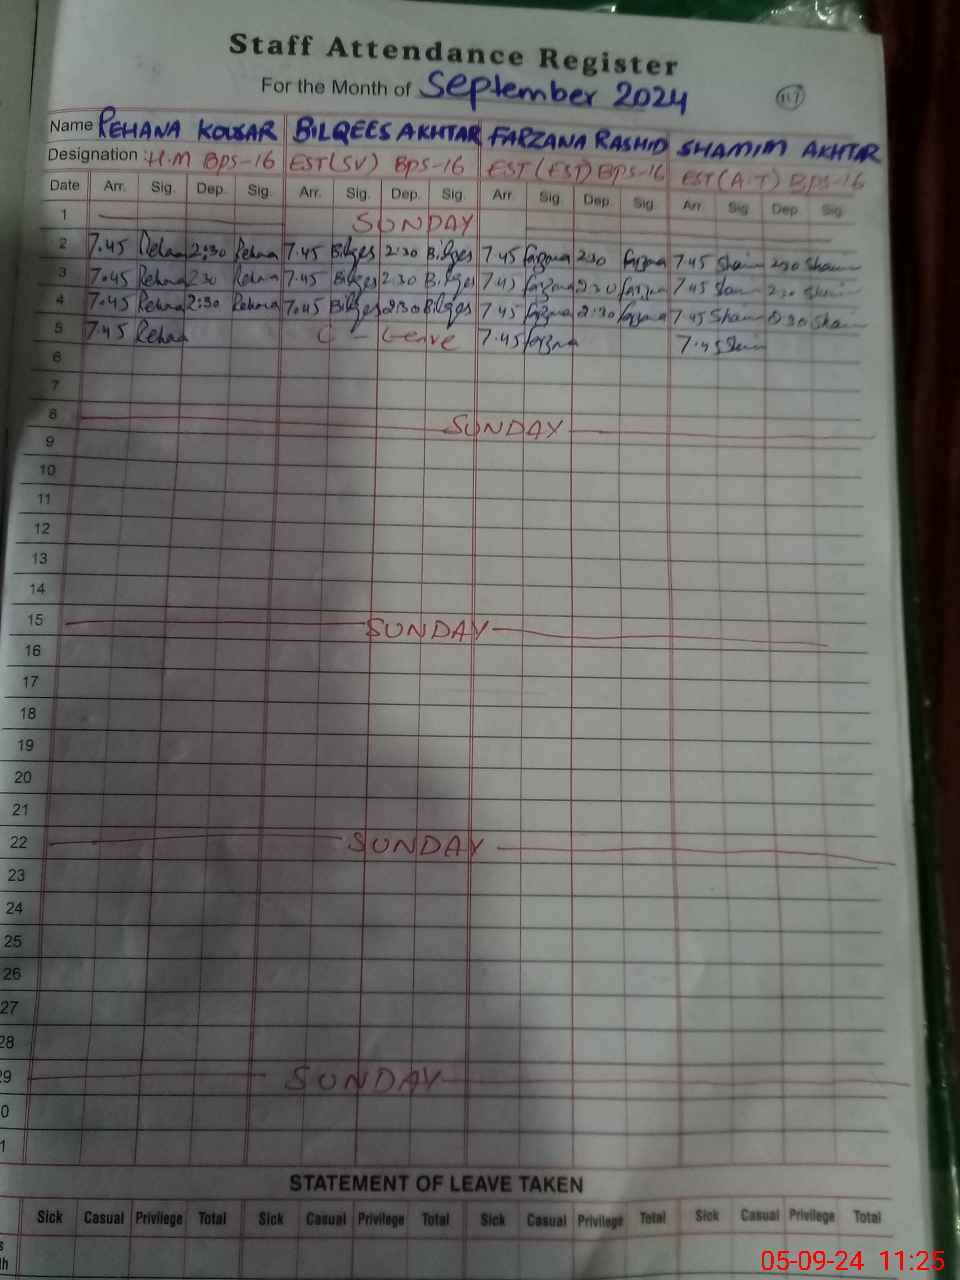 Staff Attendance Register
For the Month of September 2024
Name REHANA KOUSAR BILQEES AKHTAR FARZANA RASHID SHAMIM AKHTAR
Designation : H.M BPS-16 EST(SV) BPS-16 EST(EST) BPS-16 EST(A.T) BPS-16
Date Arr. Sig. Dep. Sig. Arr. Sig. Dep. Sig. Arr. Sig. Dep. Sig. Arr. Sig. Dep. Sig.
1 SUNDAY
2 7.45 Rehana 2:30 Rehana 7.45 Bilqes 2:30 Bilqes 7.45 Farzana 2:30 Farzana 7.45 2:30
3 7.45 Rehana 2:30 Rehana 7.45 Bilqes 2:30 Bilqes 7.45 Farzana 2:30 Farzana 7.45 2:30
4 7.45 Rehana 2:30 Rehana 7.45 Bilqes 2:30 Bilqes 7.45 Farzana 2:30 Farzana 7.45 2:30
5 7.45 Rehana C - Leave 7.45 Farzana 7.45
6
7
8 SUNDAY
9
10
11
12
13
14
15 SUNDAY
16
17
18
19
20
21
22 SUNDAY
23
24
25
26
27
28
29 SUNDAY
0
1
STATEMENT OF LEAVE TAKEN
Sick Casual Privilege Total Sick Casual Privilege Total Sick Casual Privilege Total Sick Casual Privilege Total
05-09-24 11:25